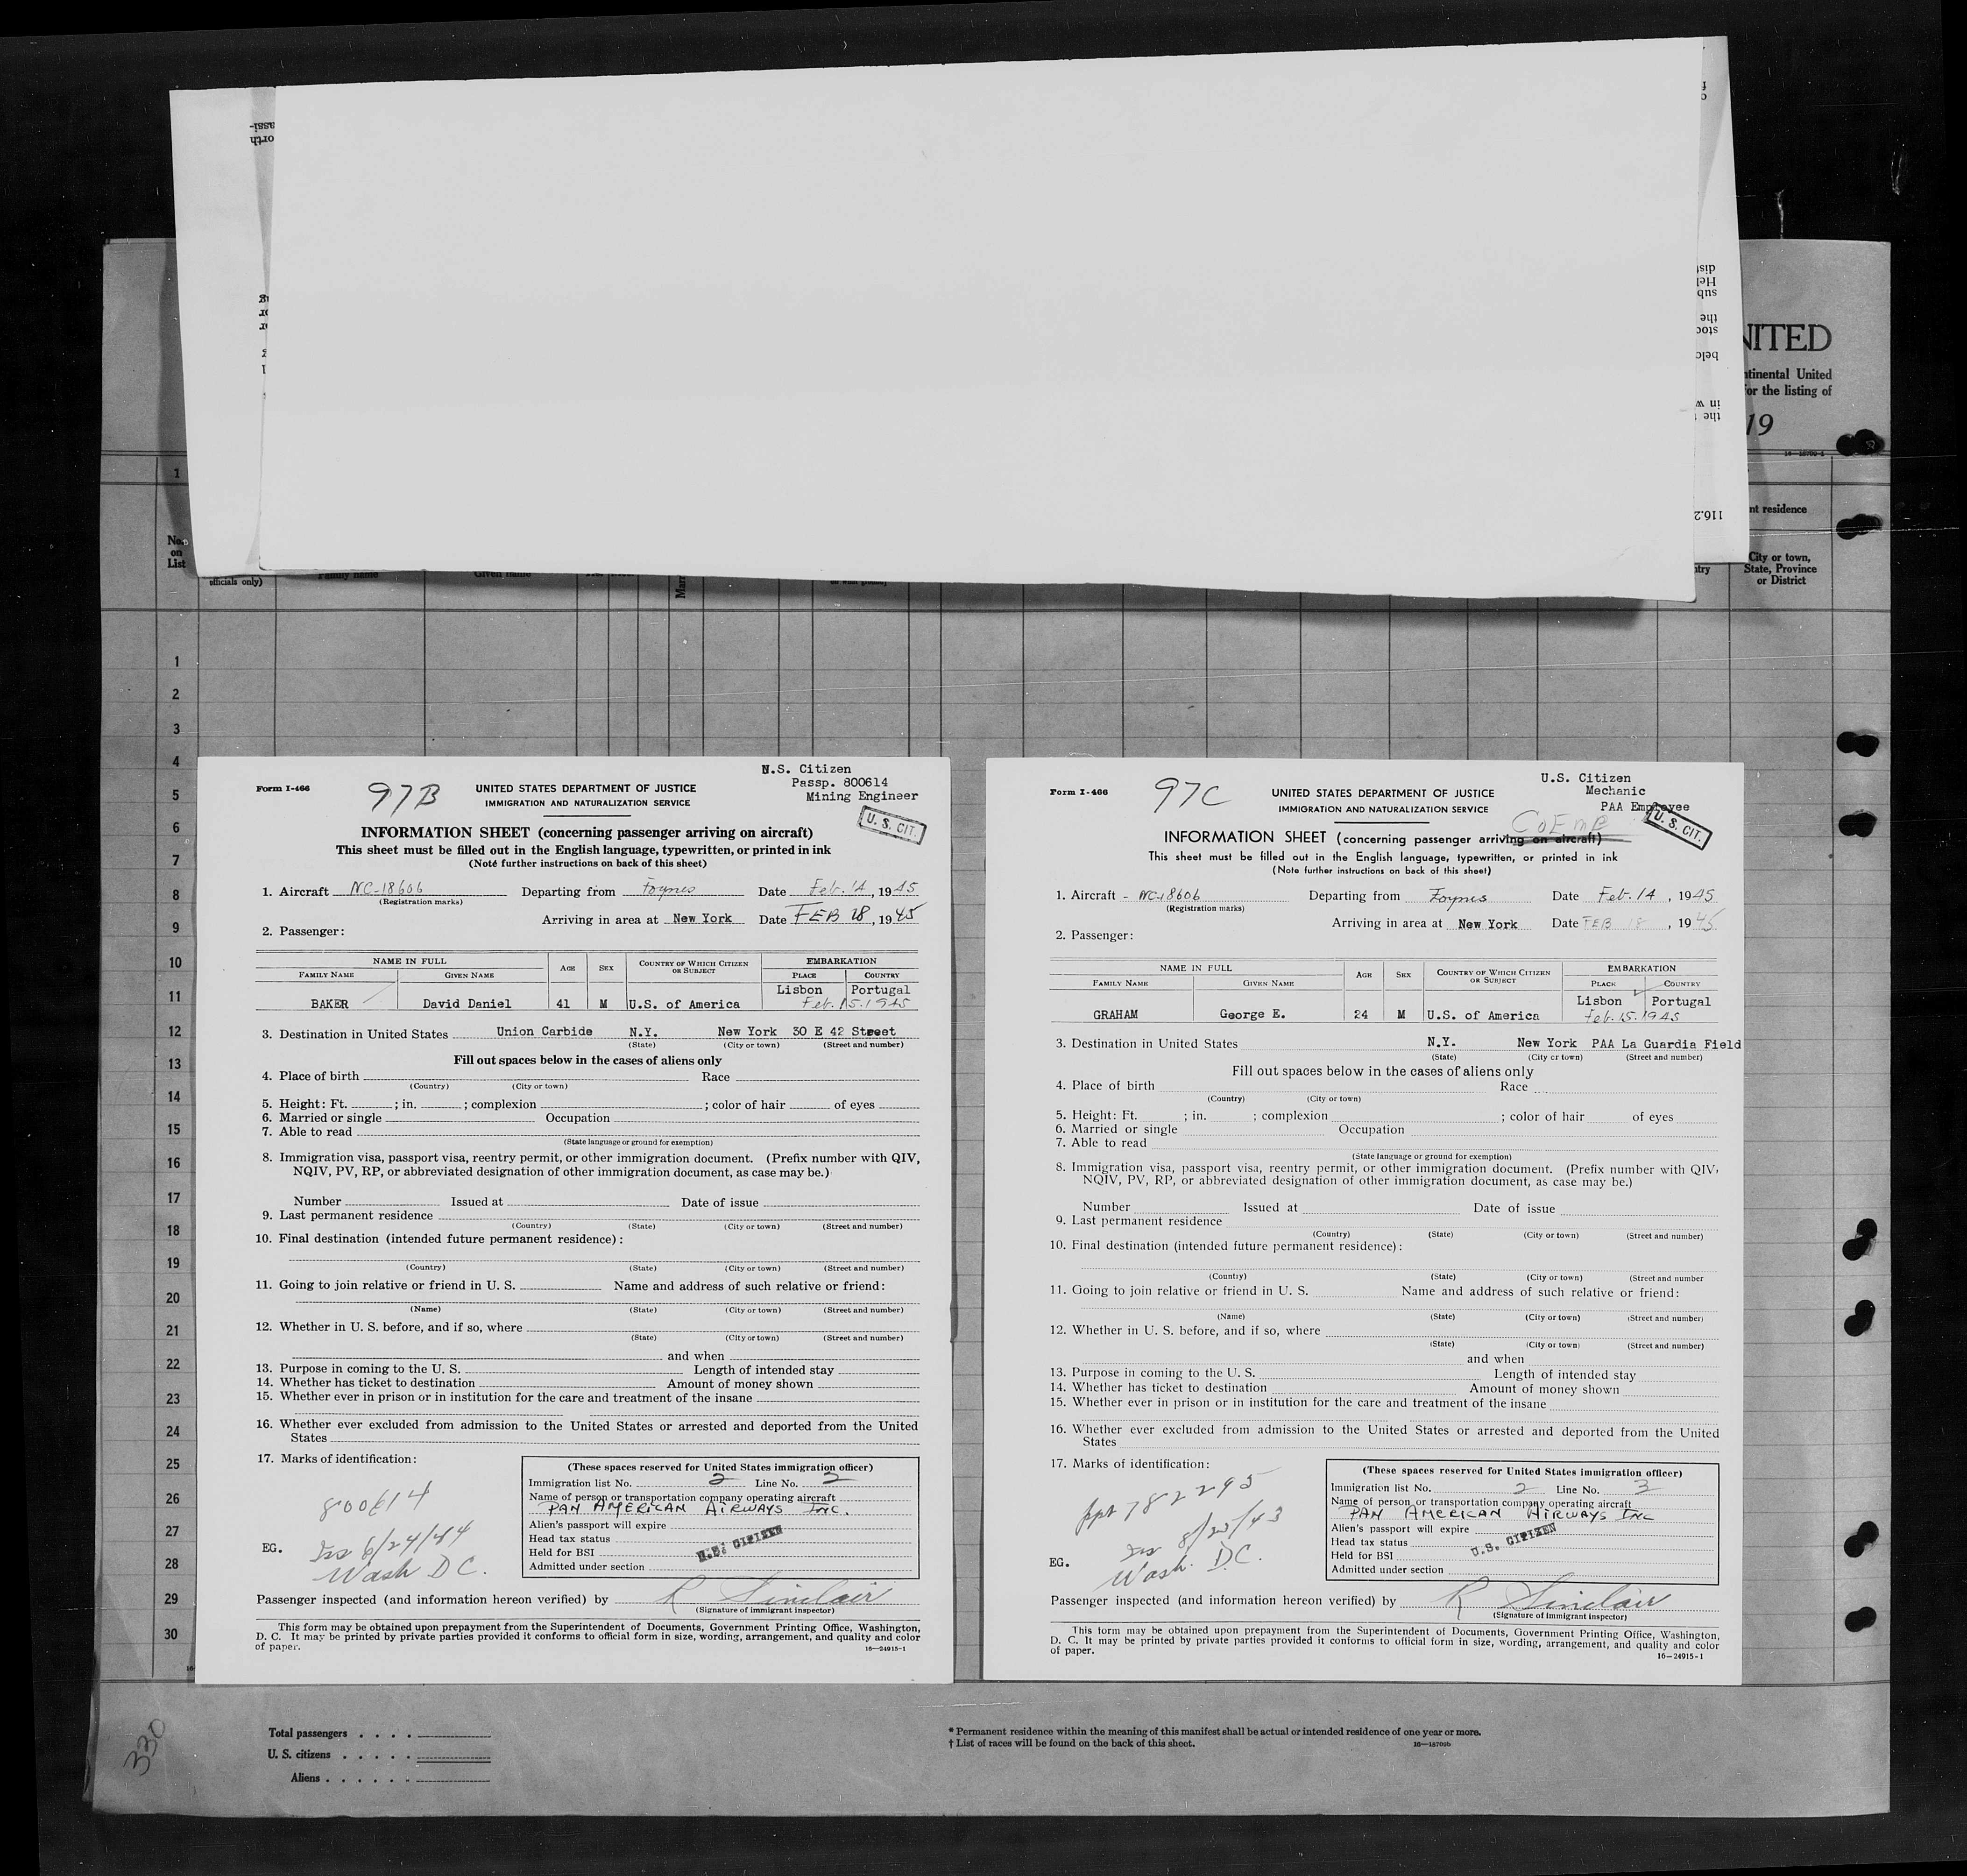 assi-
orth
dist
Hel
sub
the
stoc
belo
in w
the
116.2
NITED
ntinental United
for the listing of
19
16—18709-1
nt residence
City or town,
State, Province
or District
ntry
1
No.
on
List
officials only)
Family name
Given name
1
2
3
4
5
6
7
8
9
10
11
12
13
14
15
16
17
18
19
20
21
22
23
24
25
26
27
28
29
30
N.S. Citizen
Passp. 800614
Mining Engineer
U. S. CIT.
Form I-466
97B
UNITED STATES DEPARTMENT OF JUSTICE
IMMIGRATION AND NATURALIZATION SERVICE
INFORMATION SHEET (concerning passenger arriving on aircraft)
This sheet must be filled out in the English language, typewritten, or printed in ink
(Note further instructions on back of this sheet)
1. Aircraft NC-18606 Departing from Foynes Date Feb. 14, 1945
(Registration marks)
Arriving in area at New York Date FEB 18, 1945
2. Passenger:
NAME IN FULL AGE SEX COUNTRY OF WHICH CITIZEN OR SUBJECT EMBARKATION
FAMILY NAME GIVEN NAME PLACE COUNTRY
Lisbon Portugal
BAKER David Daniel 41 M U.S. of America Feb. 15. 1945
3. Destination in United States Union Carbide N.Y. New York 30 E 42 Street
(State) (City or town) (Street and number)
Fill out spaces below in the cases of aliens only
4. Place of birth Race
(Country) (City or town)
5. Height: Ft. ; in. ; complexion ; color of hair of eyes
6. Married or single Occupation
7. Able to read
(State language or ground for exemption)
8. Immigration visa, passport visa, reentry permit, or other immigration document. (Prefix number with QIV,
NQIV, PV, RP, or abbreviated designation of other immigration document, as case may be.)
Number Issued at Date of issue
9. Last permanent residence
(Country) (State) (City or town) (Street and number)
10. Final destination (intended future permanent residence):
(Country) (State) (City or town) (Street and number)
11. Going to join relative or friend in U. S. Name and address of such relative or friend:
(Name) (State) (City or town) (Street and number)
12. Whether in U. S. before, and if so, where
(State) (City or town) (Street and number)
and when
13. Purpose in coming to the U. S. Length of intended stay
14. Whether has ticket to destination Amount of money shown
15. Whether ever in prison or in institution for the care and treatment of the insane
16. Whether ever excluded from admission to the United States or arrested and deported from the United
States
17. Marks of identification:
800614
Iss 6/24/44
Wash D C.
EG.
(These spaces reserved for United States immigration officer)
Immigration list No. 2 Line No. 2
Name of person or transportation company operating aircraft
PAN AMERICAN AIRWAYS INC.
Alien's passport will expire
Head tax status
U.S. CITIZEN
Held for BSI
Admitted under section
Passenger inspected (and information hereon verified) by R Sinclair
(Signature of immigrant inspector)
This form may be obtained upon prepayment from the Superintendent of Documents, Government Printing Office, Washington,
D. C. It may be printed by private parties provided it conforms to official form in size, wording, arrangement, and quality and color
of paper.
16—24915-1
U.S. Citizen
Mechanic
PAA Employee
U. S. CIT.
Form I-466
97C
UNITED STATES DEPARTMENT OF JUSTICE
IMMIGRATION AND NATURALIZATION SERVICE
INFORMATION SHEET (concerning passenger arriving on aircraft)
This sheet must be filled out in the English language, typewritten, or printed in ink
(Note further instructions on back of this sheet)
1. Aircraft - NC-18606 Departing from Foynes Date Feb. 14, 1945
(Registration marks)
Arriving in area at New York Date FEB 18, 1945
2. Passenger:
NAME IN FULL AGE SEX COUNTRY OF WHICH CITIZEN OR SUBJECT EMBARKATION
FAMILY NAME GIVEN NAME PLACE COUNTRY
Lisbon Portugal
GRAHAM George E. 24 M U.S. of America Feb. 15. 1945
3. Destination in United States N.Y. New York PAA La Guardia Field
(State) (City or town) (Street and number)
Fill out spaces below in the cases of aliens only
4. Place of birth Race
(Country) (City or town)
5. Height: Ft. ; in. ; complexion ; color of hair of eyes
6. Married or single Occupation
7. Able to read
(State language or ground for exemption)
8. Immigration visa, passport visa, reentry permit, or other immigration document. (Prefix number with QIV,
NQIV, PV, RP, or abbreviated designation of other immigration document, as case may be.)
Number Issued at Date of issue
9. Last permanent residence
(Country) (State) (City or town) (Street and number)
10. Final destination (intended future permanent residence):
(Country) (State) (City or town) (Street and number
11. Going to join relative or friend in U. S. Name and address of such relative or friend:
(Name) (State) (City or town) (Street and number)
12. Whether in U. S. before, and if so, where
(State) (City or town) (Street and number)
and when
13. Purpose in coming to the U. S. Length of intended stay
14. Whether has ticket to destination Amount of money shown
15. Whether ever in prison or in institution for the care and treatment of the insane
16. Whether ever excluded from admission to the United States or arrested and deported from the United
States
17. Marks of identification:
ppt 782295
Iss 8/20/43
Wash. D.C.
EG.
(These spaces reserved for United States immigration officer)
Immigration list No. 2 Line No. 3
Name of person or transportation company operating aircraft
PAN AMERICAN AIRWAYS INC
Alien's passport will expire
Head tax status
U.S. CITIZEN
Held for BSI
Admitted under section
Passenger inspected (and information hereon verified) by R Sinclair
(Signature of immigrant inspector)
This form may be obtained upon prepayment from the Superintendent of Documents, Government Printing Office, Washington,
D. C. It may be printed by private parties provided it conforms to official form in size, wording, arrangement, and quality and color
of paper.
16—24915-1
330
Total passengers . . . .
U. S. citizens . . . . .
Aliens . . . . . .
* Permanent residence within the meaning of this manifest shall be actual or intended residence of one year or more.
† List of races will be found on the back of this sheet.
16—18709b